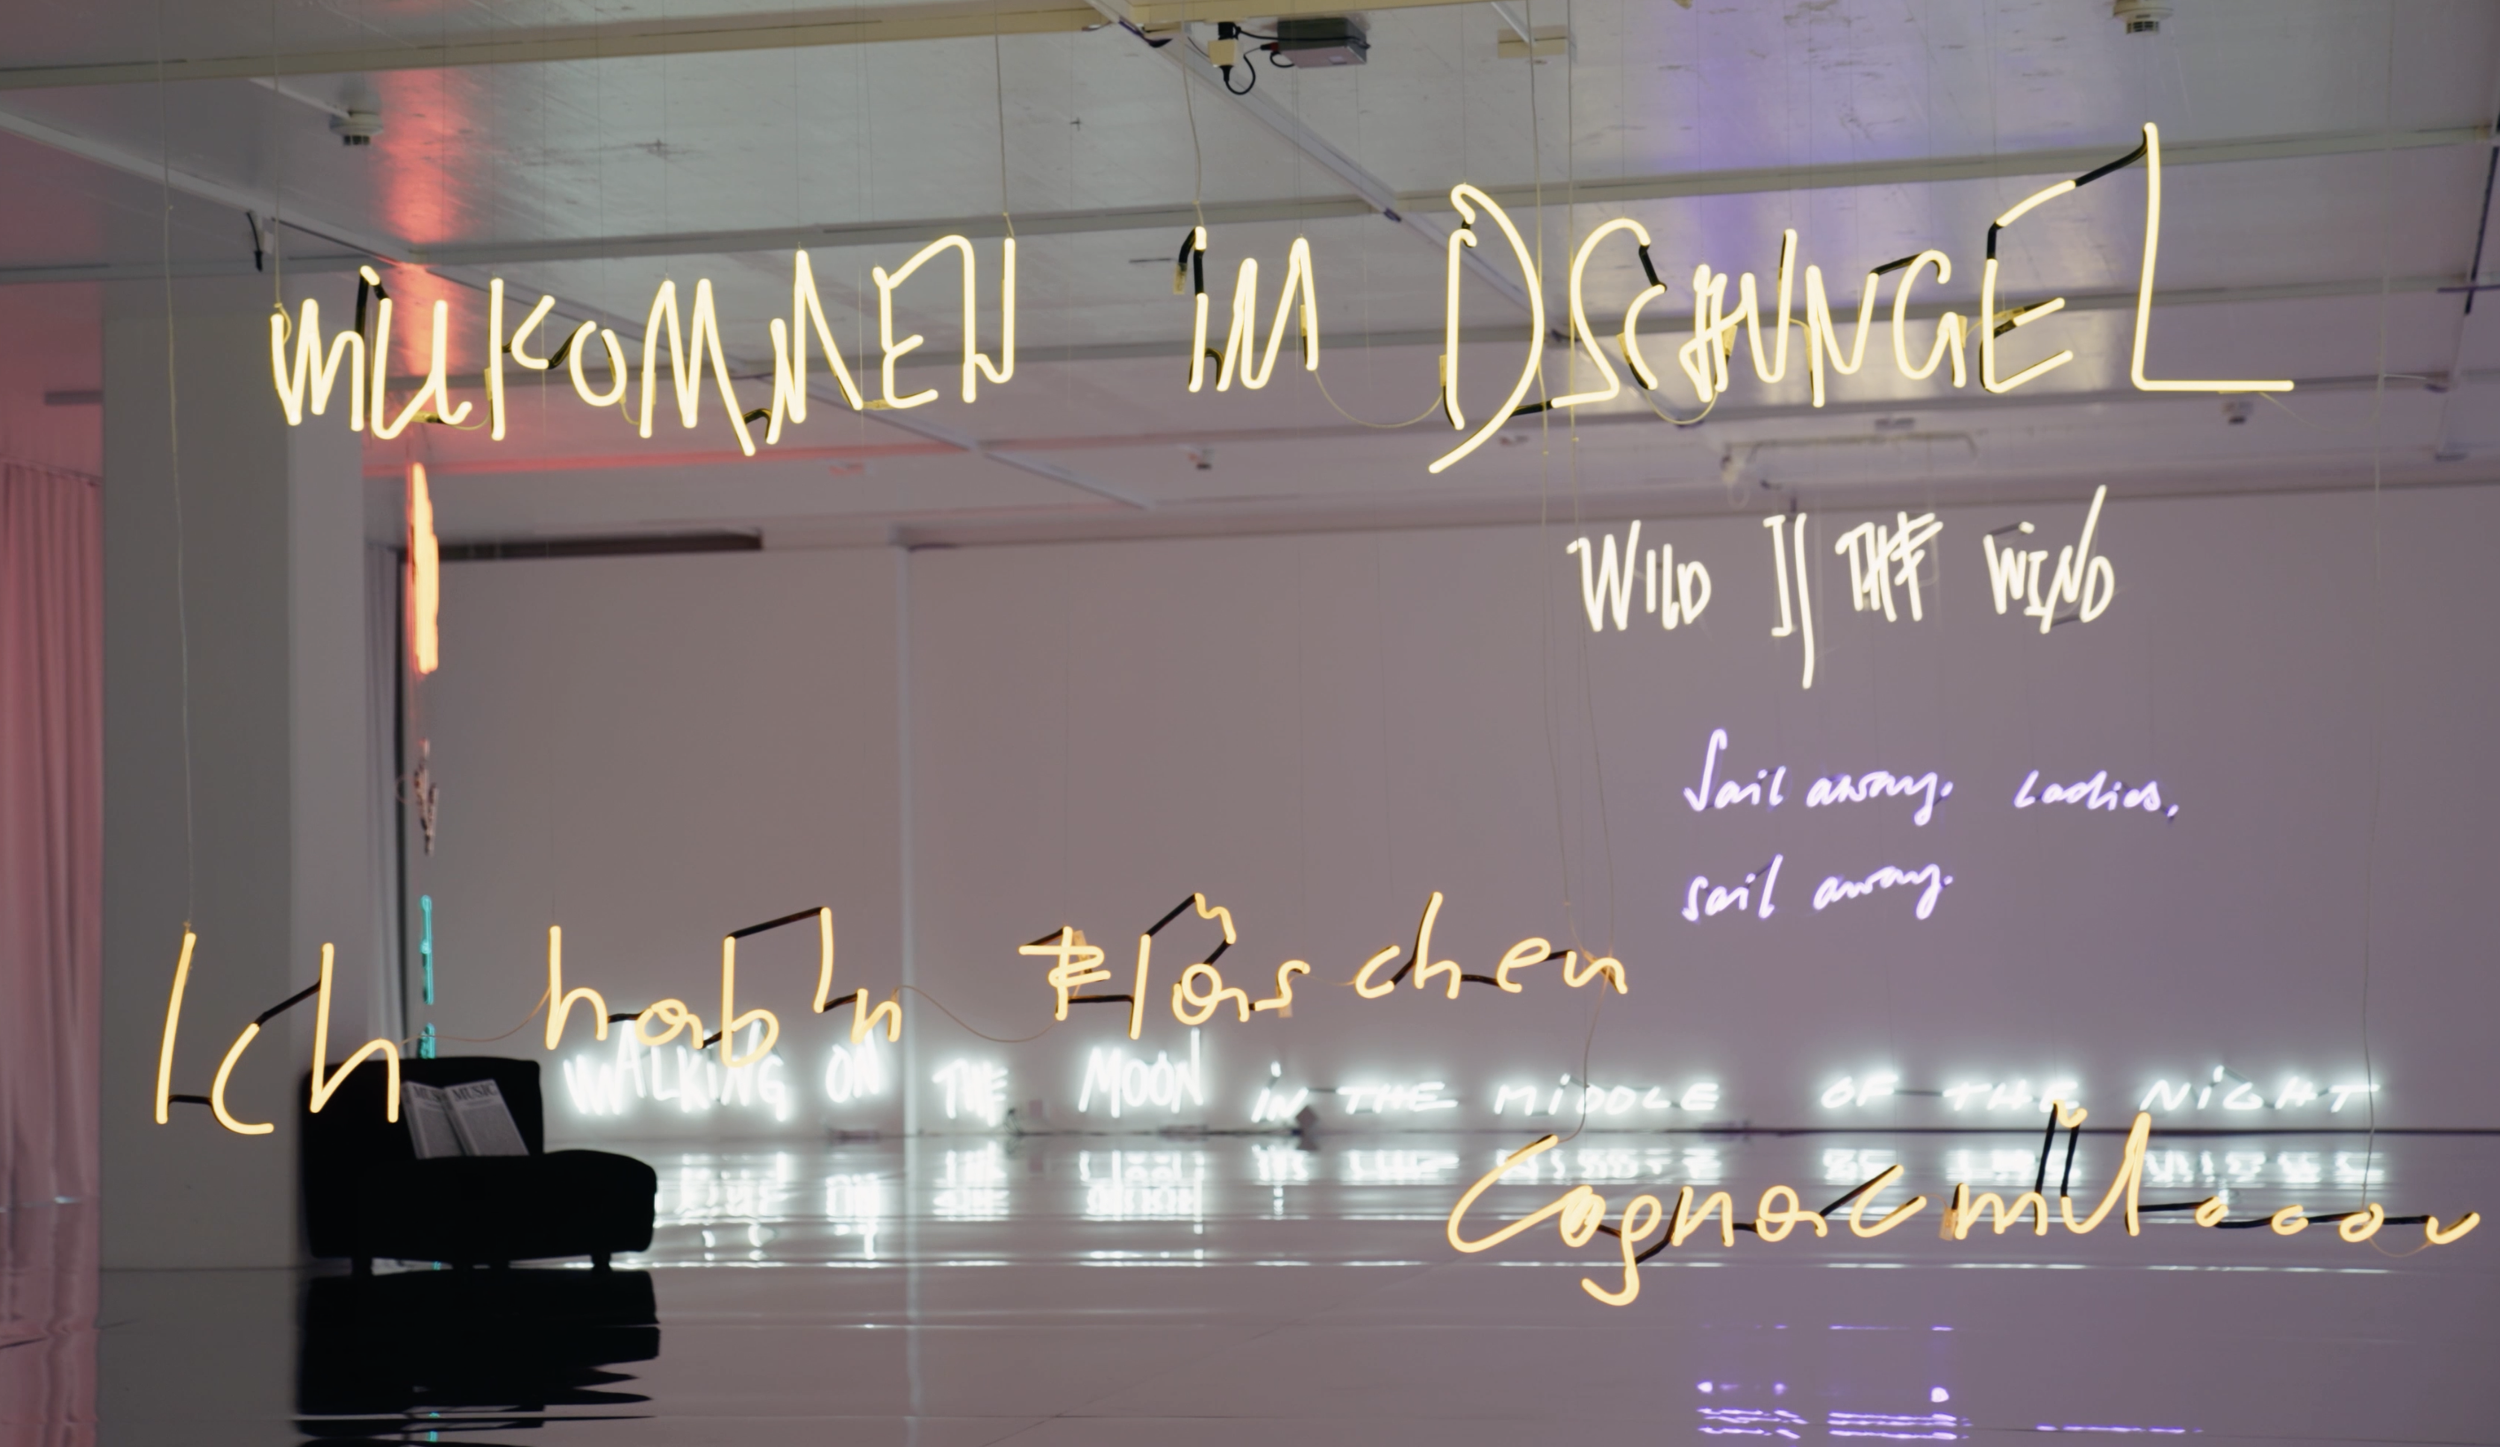 WILLKOMMEN iM DSCHUNGEL
WILD IS THE WIND
Sail away. Ladies,
sail away.
Ich hab'n Fläschchen
WALKiNG ON THE MOON
iN THE MiDDLE OF THE NiGHT
Cognac mit
MUSIC